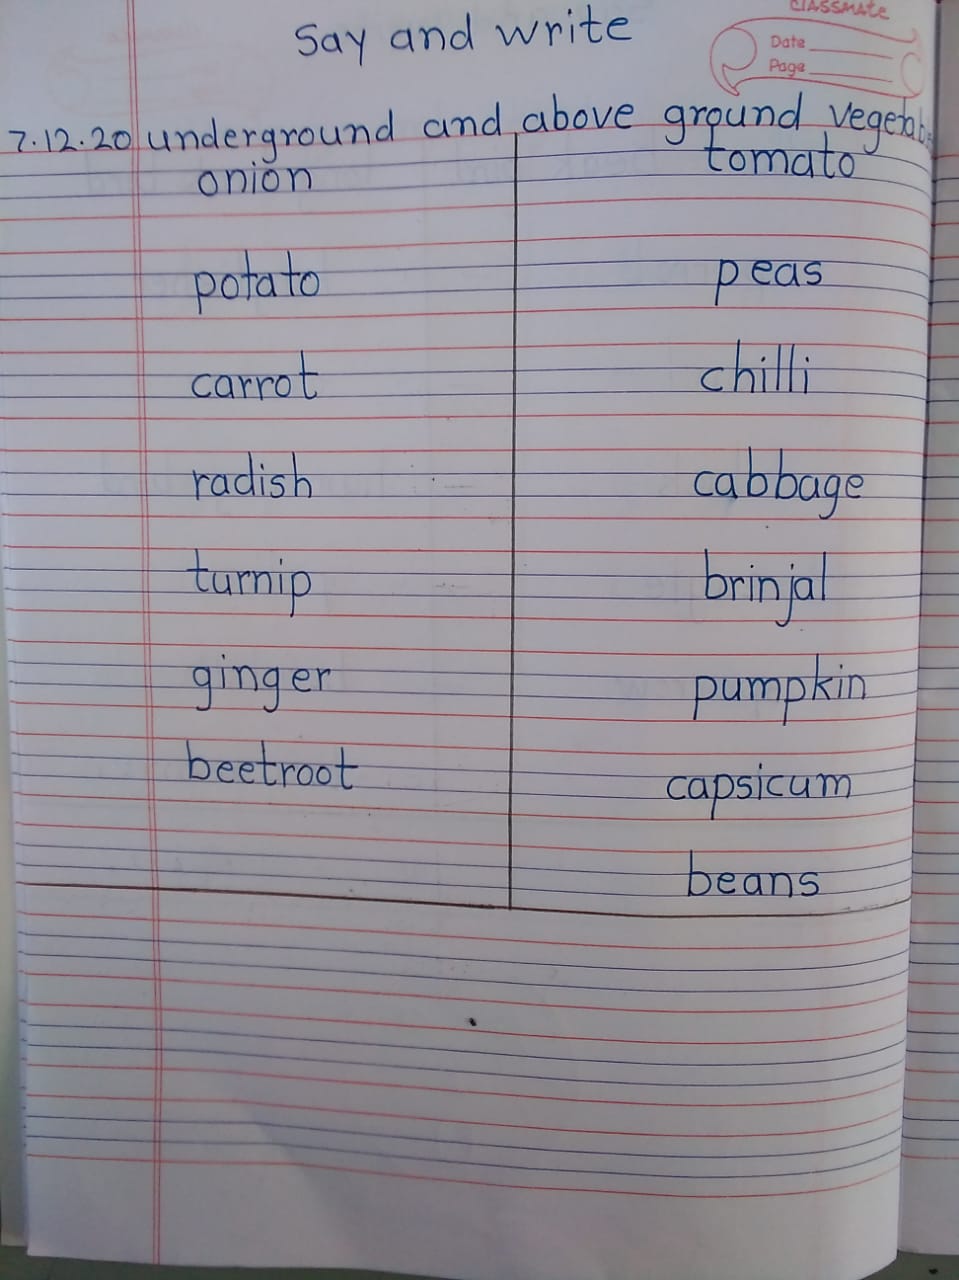 classmate
Say and write
Date
Page
7.12.20 underground and above ground vegetab
onion tomato
potato peas
carrot chilli
radish cabbage
turnip brinjal
ginger pumpkin
beetroot capsicum
beans